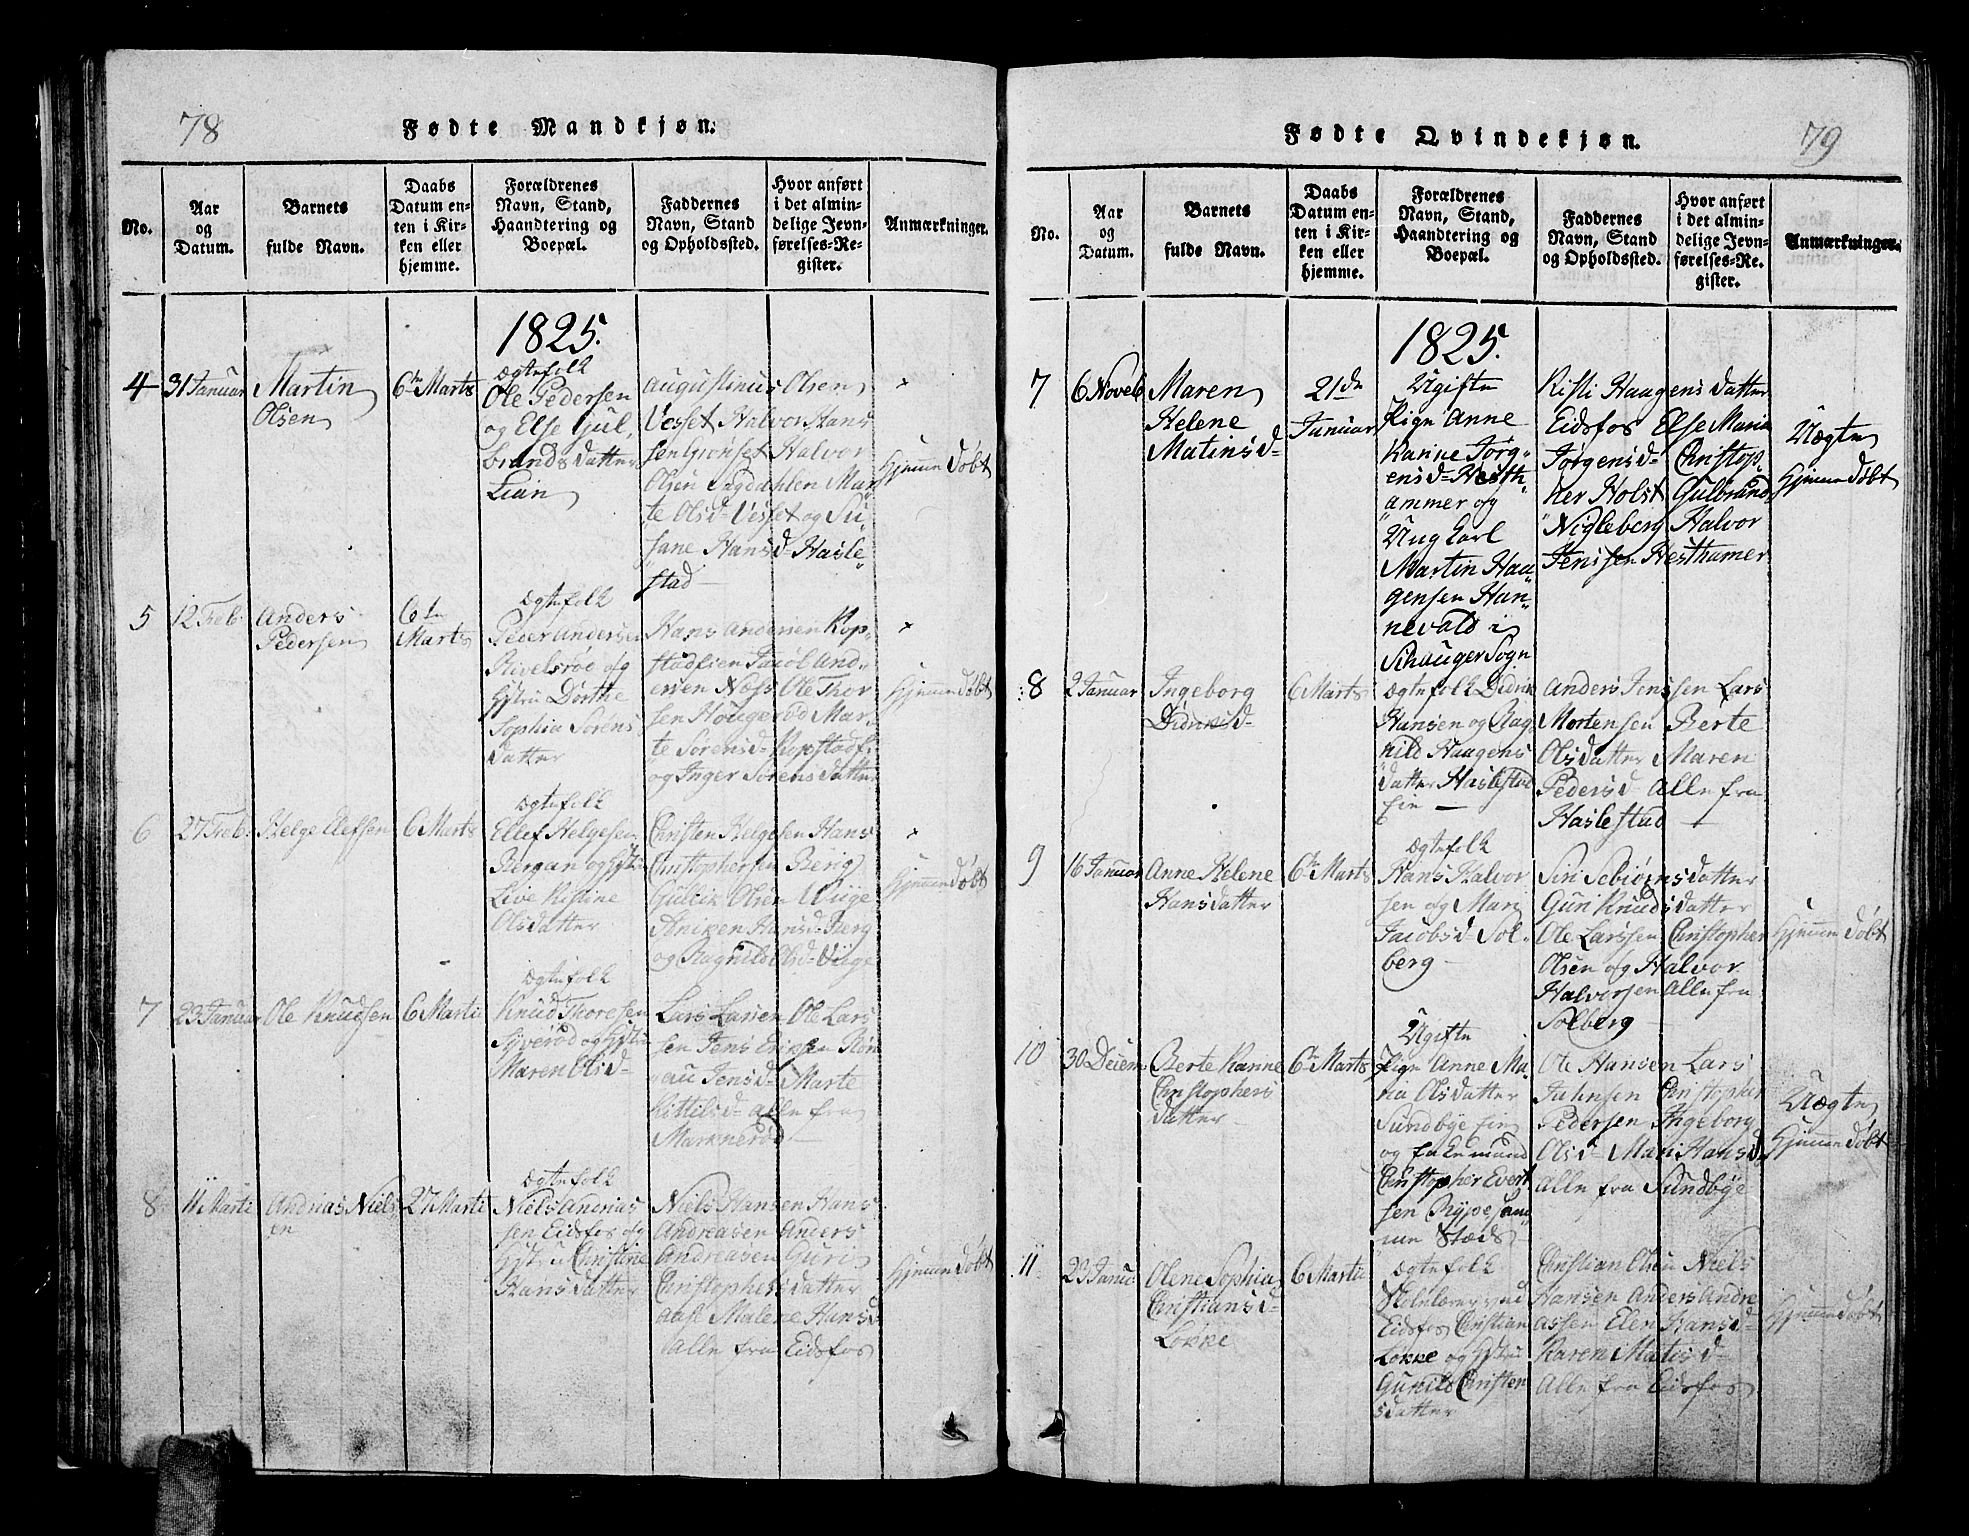 78
Fødte Mandkjøn.
No.
Aar
og
Datum.
Barnets
fulde Navn.
Daabs
Datum en-
ten i Kir-
ken eller
hjemme.
Forældrenes
Navn, Stand,
Haandtering og
Boepæl.
Faddernes
Navn, Stand
og Opholdssted.
Hvor anført
i det almin-
delige Jevn-
førelses-Re-
gister.
Anmærkninger.
1825.
4
31 Januar
Martin
Olsen
6te Marts
Ægtefolk
Ole Pedersen
og Else Gul-
brands Datter
Lian
Augustinus Olsen
Vesset Halvor Hans
sen Grønset Halvor
Olsen Sagdahlen Mar
te Olsd- Vesset og Su-
sane Hansd- Hasle-
stad
Hjemme Døbt
5
12 Feb.
Anders
Pedersen
6te
Marts
Ægtefolk
Peder Andersen
Rivelsrøe og
Hstru Dorthe
Sophia Sørens
Datter
Hans Andersen Kop-
stadeien Jacob And-
ersen Næss Ole Thor
sen Hougerød Mar-
te Sørensd- Kopstad
og Inger Sørens Datter
Hjemme Døbt
6
27 Feb.
Helge Elefsen
6 Marts
Ægtefolk
Ellef Helgesen
Bergan og
Live Kistine
Olsdatter
Christen Helgesen Hans
Christophersen Berig
Gullik Olsen Wiige
Anniken Hansd- Berg
og Ragnild Olsd- Viige
Hjemme Døbt
7
23 Januar
Ole Knudsen
6 Marti
Ægtefolk
Knud Thoresen
Syverød og Hstru
Maren Olsd-
Lars Larsen Ole Lars
sen Jens Eriksen Røn
nau Jensd- Marte
Kittilsd- alle fra
Marknerød
8
11 Marti
Andrias Niels
en
27 Marti
Ægtefolk
Niels Andrias
sen Eidsfos og
Hstru Christine
Hans Datter
Niels Hansen Hans
Andreasen Anders
Andreasen Guri
Christophers Datter
Aase Malene Hansd
Alle fra Eidsfos
Hjemme Døbt
79
Fødte Qvindekjøn.
No.
Aar
og
Datum.
Barnets
fulde Navn.
Daabs
Datum en-
ten i Kir-
ken eller
hjemme.
Forældrenes
Navn, Stand,
Haandtering og
Boepæl.
Faddernes
Navn, Stand
og Opholdssted.
Hvor anført
i det almin-
delige Jevn-
førelses-Re-
gister.
Anmærkninger.
1825.
7
6 Noveb
Maren
Helene
Matinsd-
21de
Januar
Ugifte
Pige Anne
Karine Jørg-
ensd- Hesth-
ammer og
Ung Karl
Martin Haa-
gensen Han-
nevald i
Schauger Sogn
Kisti Haagens Datter
Eidsfos Else Maria
Jørgensd- Christop-
her Holst Gulbrand
Nigleberg Halvor
Jenssen Hesthamer
Uægte
Hjemme Døbt
8
2 Januar
Ingeborg
Didriksd-
6 Marts
Ægtefolk Didrik
Hansen og Rag-
nild Haagens
Datter Haslestad
Eie
Anders Jenssen Lars
Mortensen Berte
Olsdatter Maren
Pedersd Alle fra
Haslestad
9
16 Januar
Anne Helene
Hansdatter
6te Marts
Ægtefolk
Hans Halvor
sen og Mari
Jacobsd- Sol-
berg
Siri Sebiørnsdatter
Guri Knudsdatter
Ole Larssen Christopher
Olsen og Halvor
Halvorsen Alle fra
Solberg
Hjemme Døbt
10
30 Decem
Berte Karine
Christophers
datter
6te Marts
Ugifte
Pige Anne Ma-
ria Olsdatter
Sundbye Eie
og Enkemand
Christopher Evert
sen Rype sam-
me Stæds
Ole Hansen Lars
Juhnsen Christopher
Pedersen Ingeborg
Olsd- Mari Hansd-
Alle fra Sundbye
Uægte
Hjemme Døbt
11
23 Janu
Olene Sophia
Christiansd-
Løkke
6 Marti
Ægtefolk
Skolelærer ved
Eidsfos Christian
Løkke og Hstru
Gunild Christen
sdatter
Christian Olsen Niels
Hansen Anders Andre
assen Elen Hansd-
Karen Matisd-
Alle fra Eidsfos
Hjemme Døbt